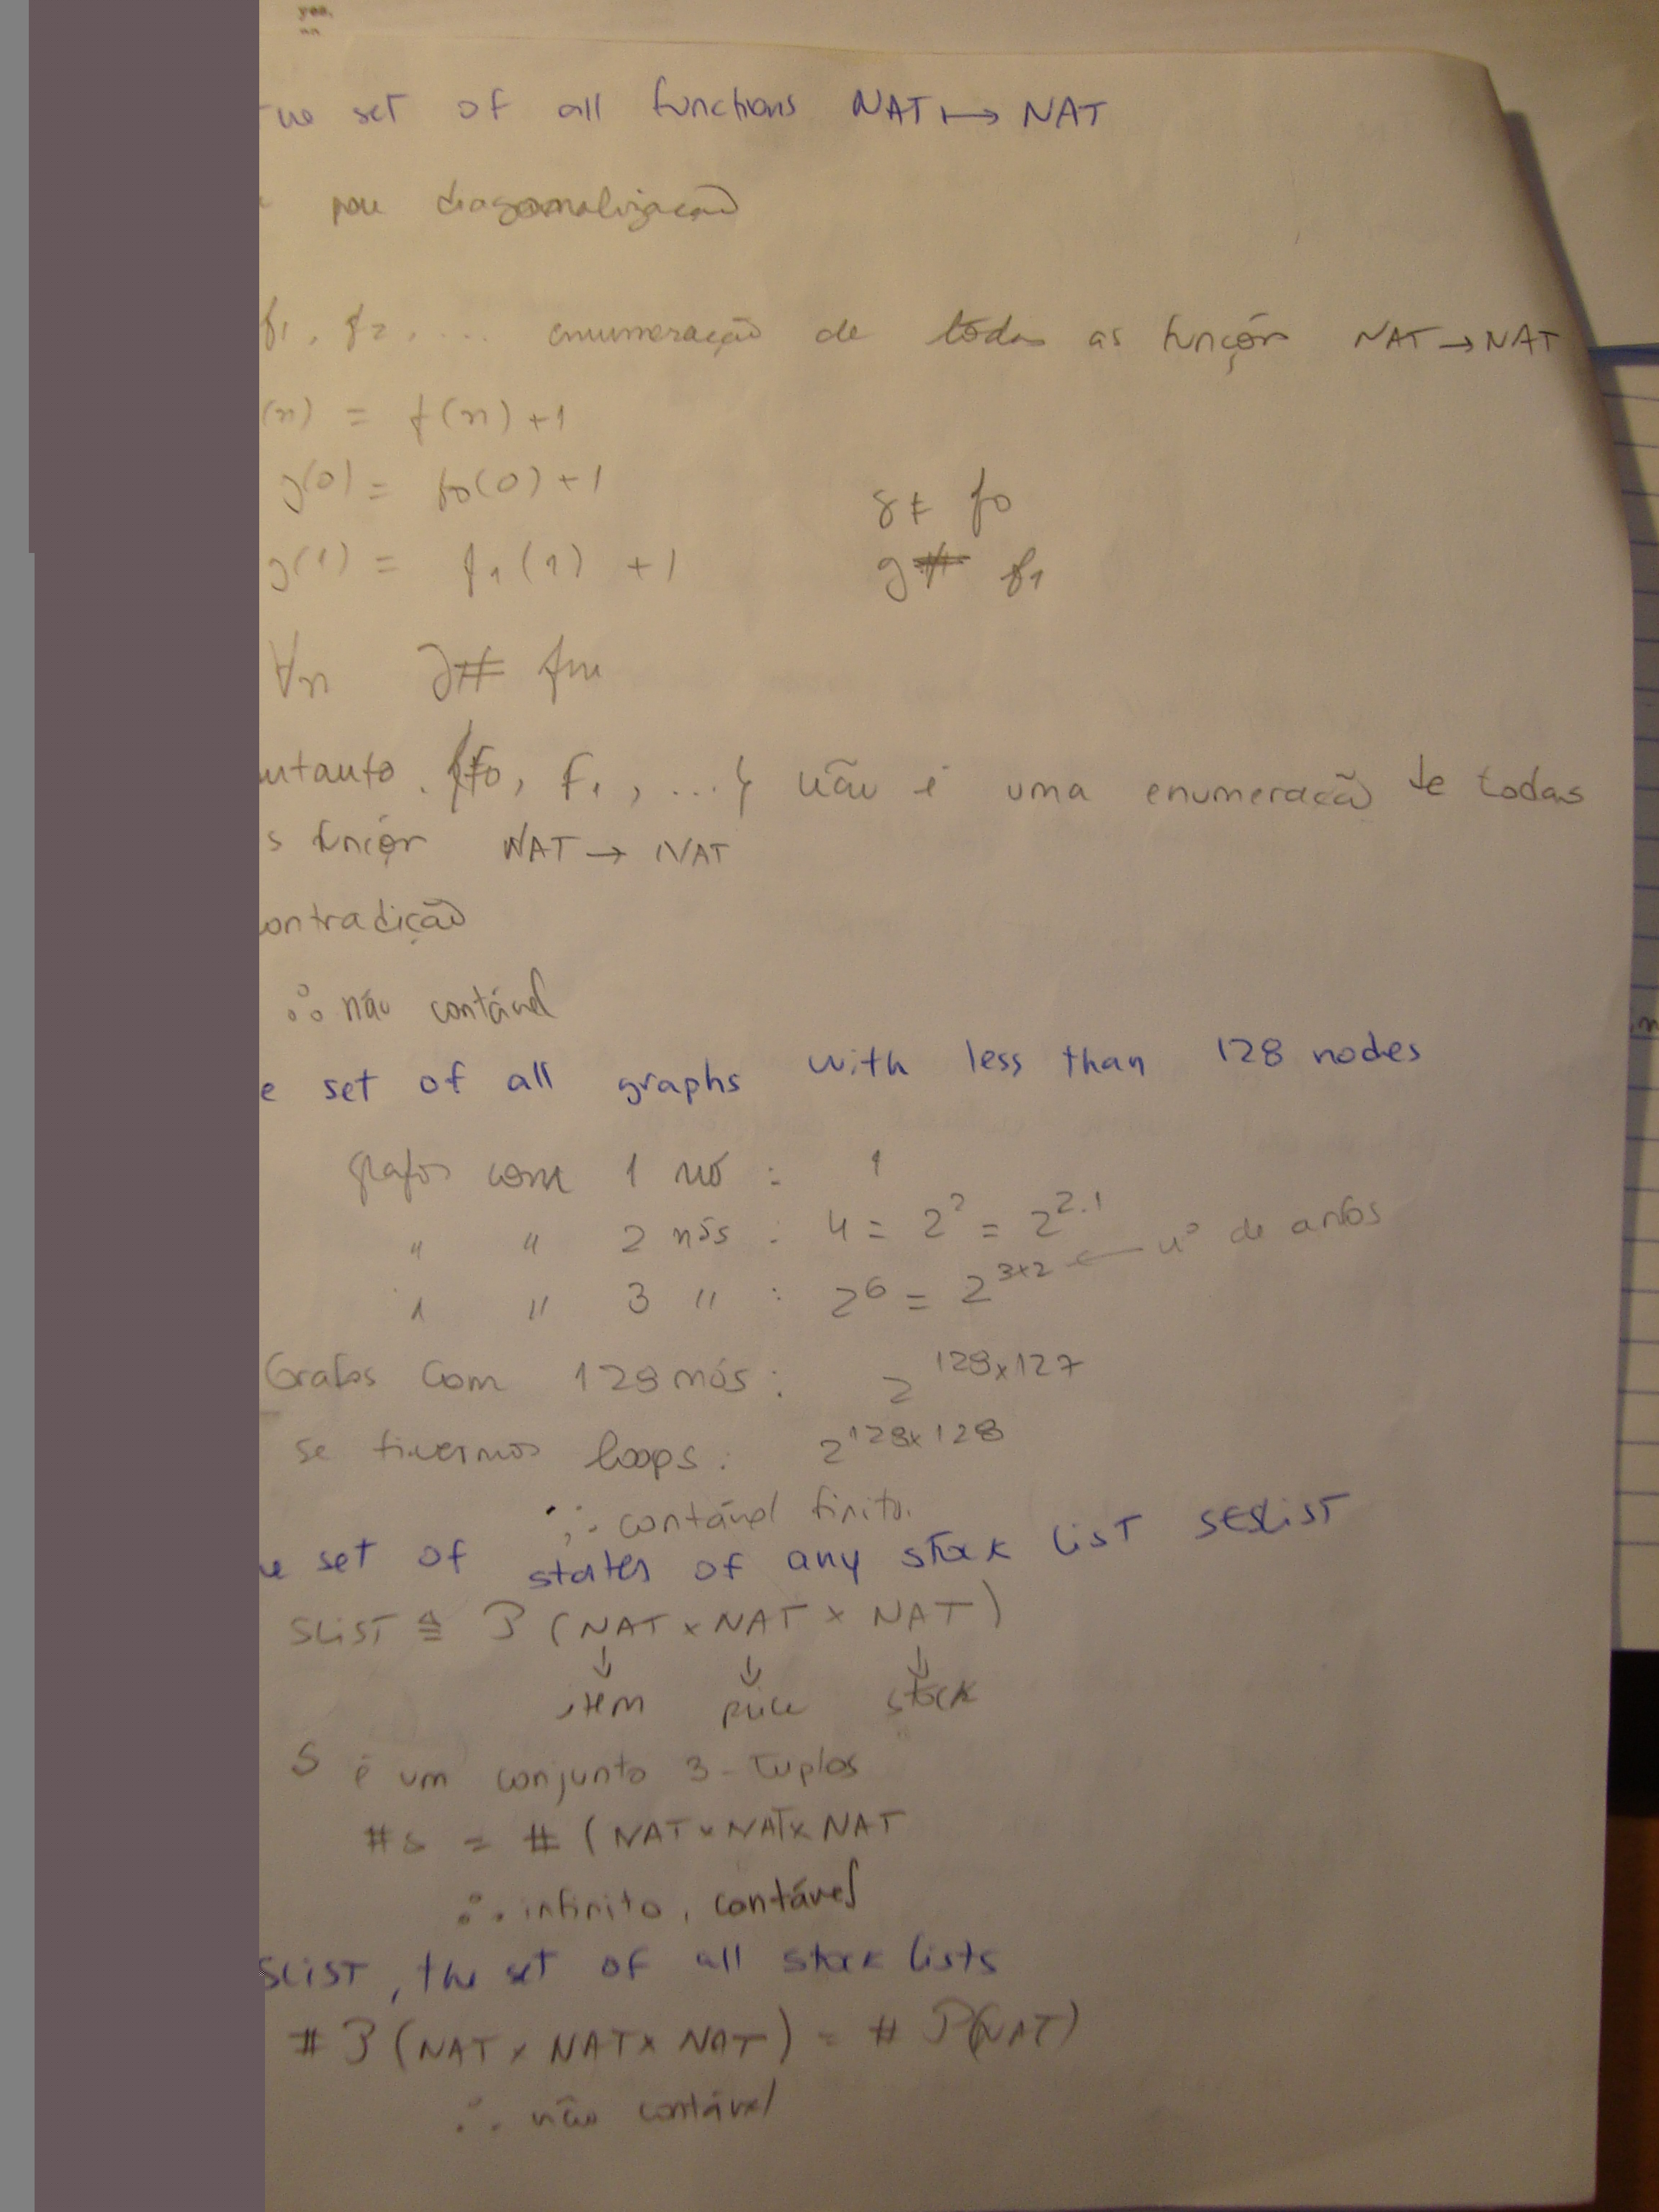 yes,
set of all functions NAT ↦ NAT
por diagonalização
f1, f2, ... enumeração de todas as funções NAT → NAT
(n) = f(n) +1
g(0) = f0(0) +1
g ≠ f0
g(1) = f1(1) +1
g ≠ f1
∀n g ≠ fn
{f0, f1, ...} não é uma enumeração de todas
s funções NAT → NAT
ontradição
∴ não contável
e set of all graphs with less than 128 nodes
grafos com 1 nó : 1
" " 2 nós : 4 = 2^2 = 2^2.1
" " 3 " : 2^6 = 2^3×2 ← nº de arcos
Grafos com 128 nós : 2^128×127
se tivermos loops : 2^128×128
∴ contável finito.
e set of states of any stock list s∈SLIST
SLIST ≙ P (NAT × NAT × NAT)
↓ ↓ ↓
item price stock
S é um conjunto 3-tuplos
#s = # (NAT × NAT × NAT
∴ infinito, contável
SLIST, the set of all stock lists
# P (NAT × NAT × NAT) = # P(NAT)
∴ não contável